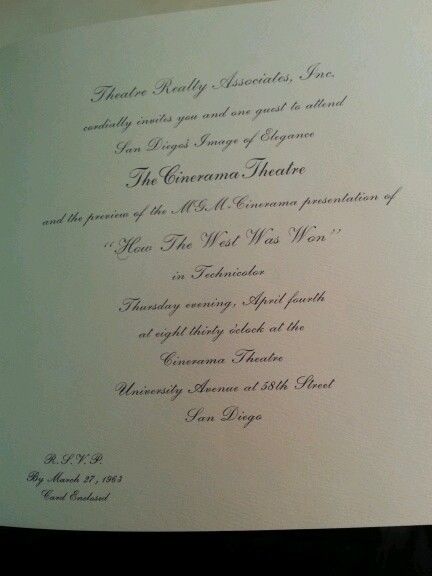 Theatre Realty Associates, Inc.
cordially invites you and one guest to attend
San Diego's Image of Elegance
The Cinerama Theatre
and the preview of the MGM-Cinerama presentation of
"How The West Was Won"
in Technicolor
Thursday evening, April fourth
at eight thirty o'clock at the
Cinerama Theatre
University Avenue at 58th Street
San Diego
R.S.V.P.
By March 27, 1963
Card Enclosed